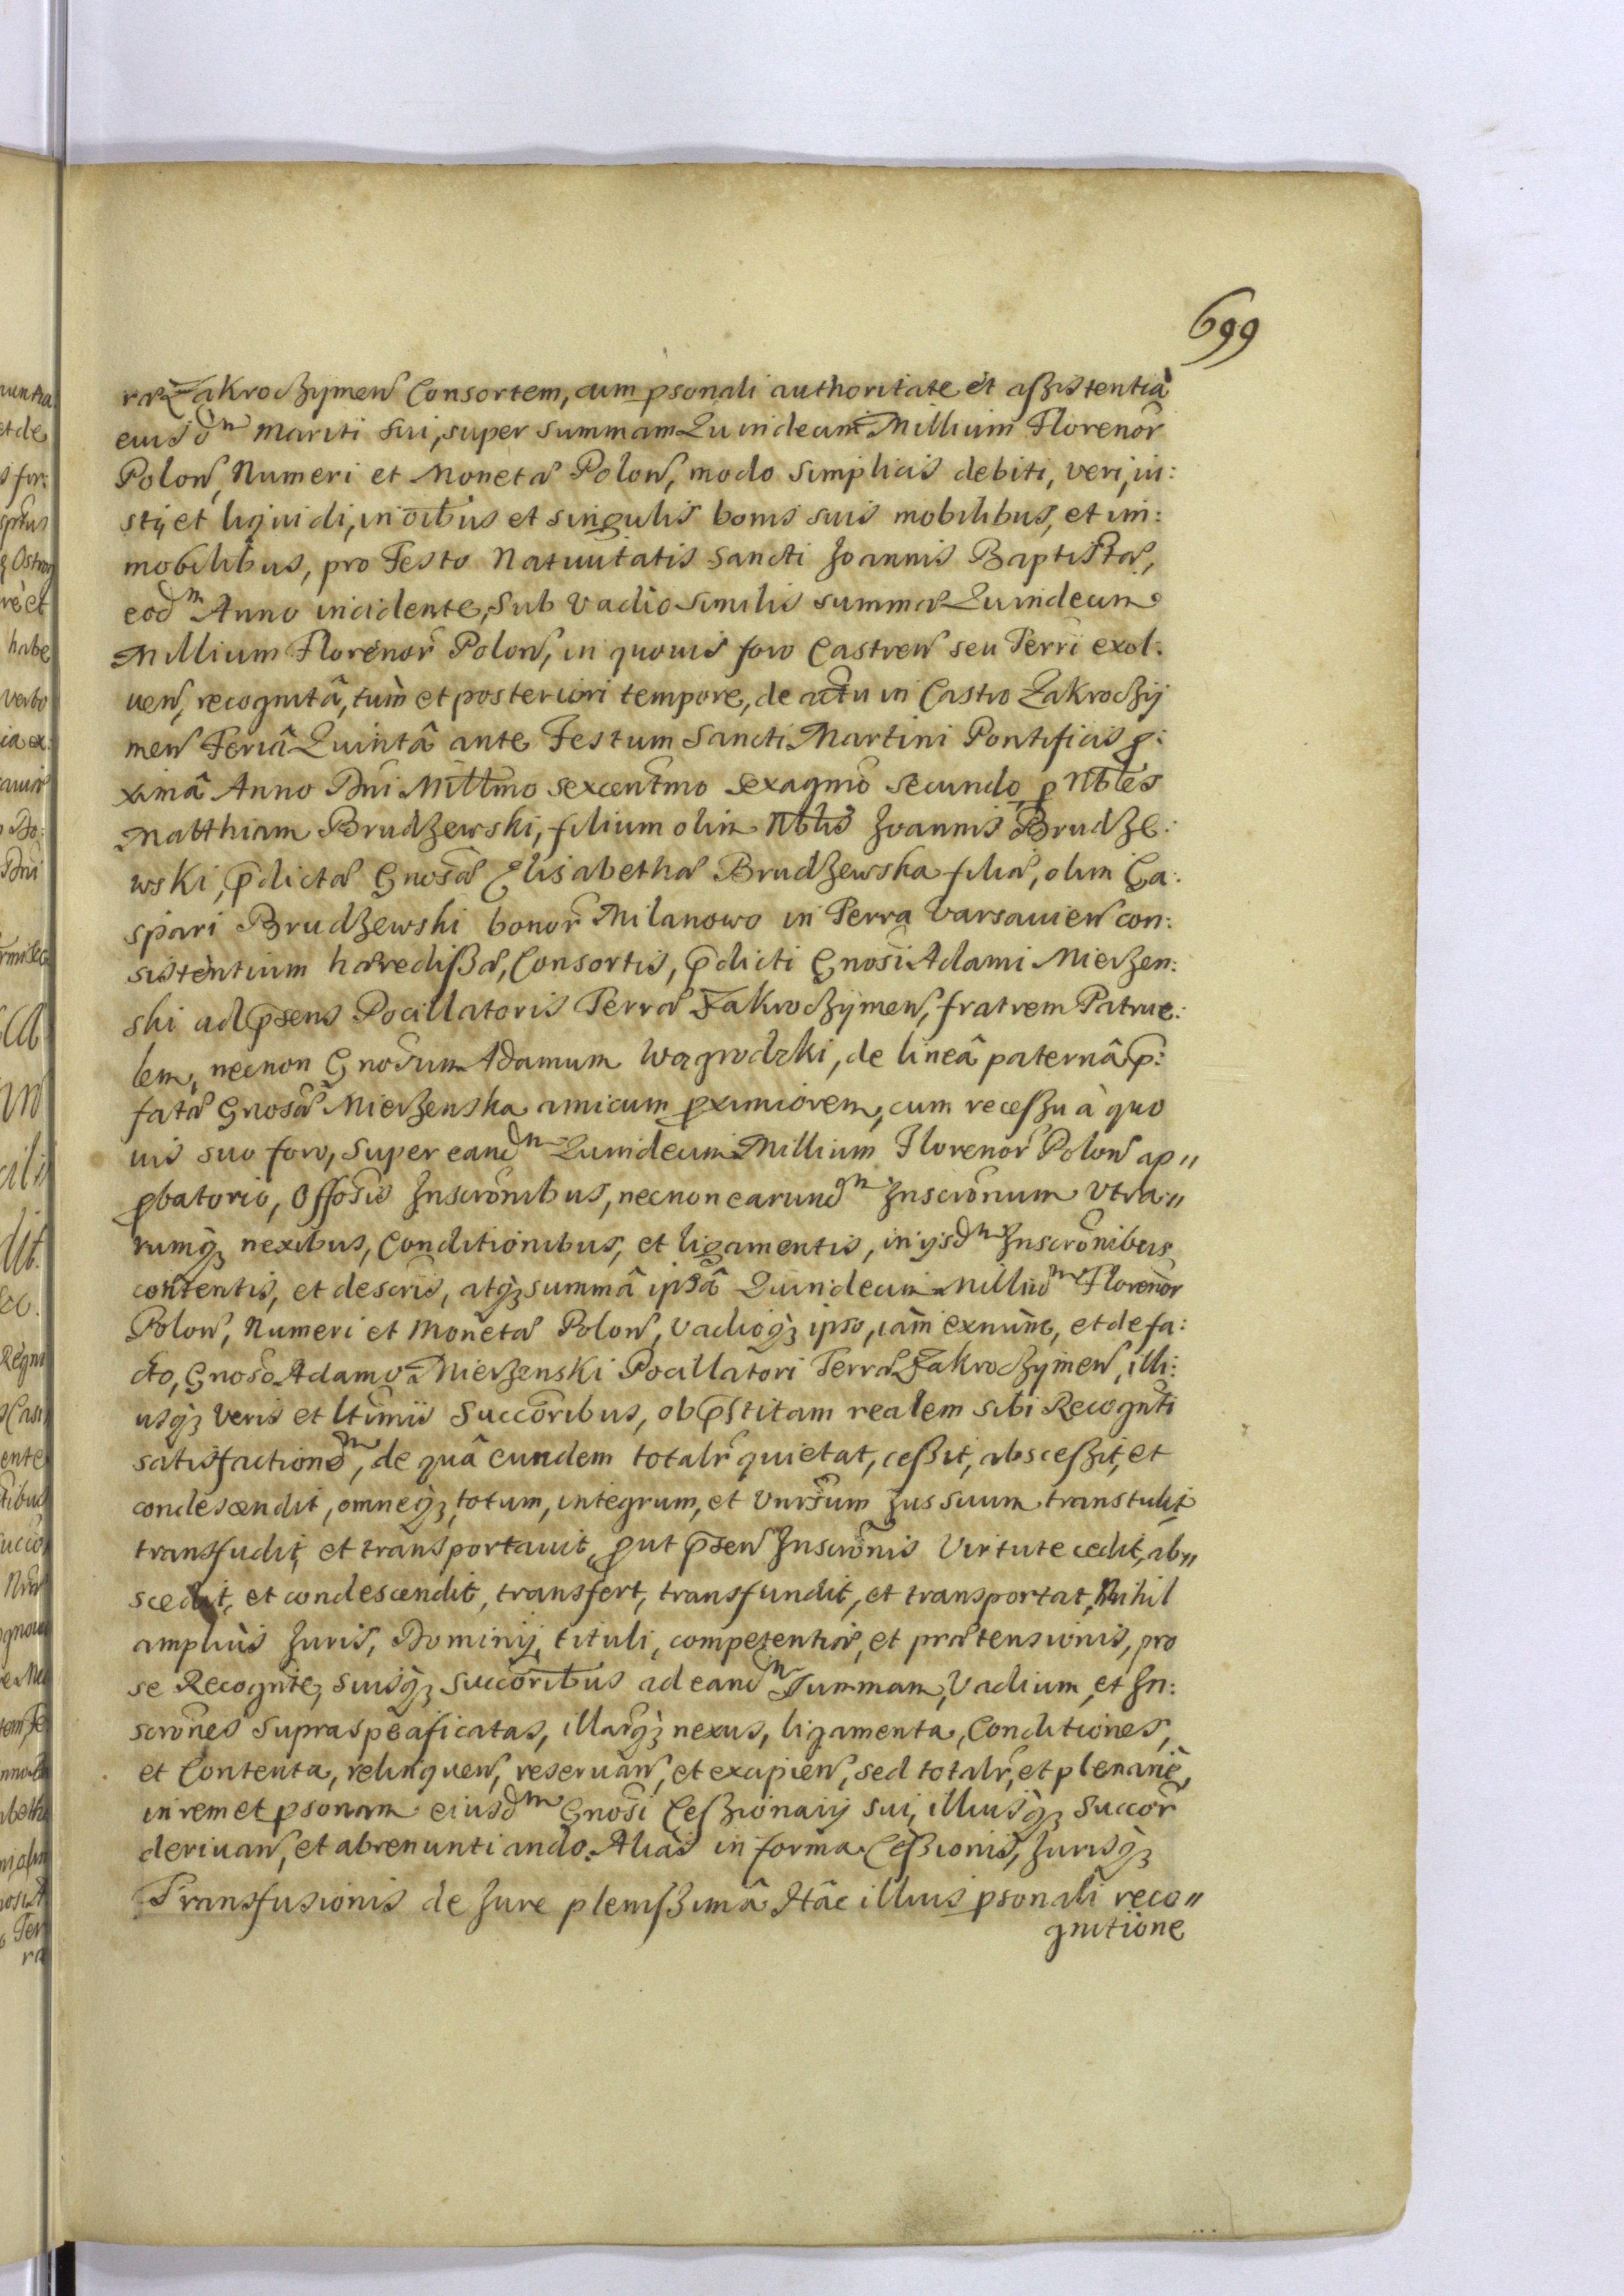 699
ræ Zakroczymen Consortem, cum psonali authoritate et assistentia
eiusdm Mariti sui, super summam Quindecim Millium Florenor
Polon, Numeri et Monetæ Polon, modo simplicis debiti, veri, iu:
sti, et liquidi, in oibus et singulis bonis suis mobilibus, et im:
mobilibus, pro Festo Natiuitatis Sancti Joannis Baptistæ,
eodm Anno incidente, Sub Vadio similis summæ Quindecim
Millium Florenor Polon, in quouis foro Castren seu Terri exol:
uen, recognitâ, tum et posteriori tempore, de actu in Castro Zakroczy
men Feriâ Quintâ ante Festum Sancti Martini Pontificis p:
ximâ Anno Dni Millmo sexcentmo sexagmo secundo, p Nbles
Matthiam Brudzewski, filium olim Nblis Joannis Brudze:
wski, pdictæ Gnosæ Elisabethæ Brudzewska filiæ, olim Ga:
spari Brudzewski bonor Milanowo in Terra Varsauien con:
sistentium hæredissæ, Consortis, pdicti Gnosi Adami Mierzen:
ski ad psens Pocillatoris Terræ Zakroczymen, fratrem Patrue:
lem, necnon Gnosum Adamum Wągrodzki, de lineâ paternâ p:
fatæ Gnosæ Mierzenska amicum pximiorem, cum recessu à quo
uis suo foro, super eandm Quindecim Millium Florenor Polon ap"
pbatorio, Offosis Inscronibus, necnon earundm Inscronum Vtra"
rumq3 nexibus, Conditionibus, et ligamentis, in ijsdm Inscronibus
contentis, et descris, atq3 summâ ipsâ Quindecim Milliūm Florenor
Polon, Numeri et Monetæ Polon, Vadioq3 ipso, iam exnunc, et de fa:
cto, Gnoso Adamo Mierzenski Pocillatori Terræ Zakroczymen, illi:
usq3 Veris et ltimis Succoribus, ob pstitam realem sibi Recognti
satisfactionem, de quâ eundem totalr quietat, cessit, abscessit, et
condescendit, omneq3, totum, integrum, et Vnrsum Jus suum transtulit
transfudit, et transportauit, put psen Inscronis Virtute cedit, ab"
scedit, et condescendit, transfert, transfundit, et transportat, Nihil
amplius Juris, Dominij, tituli, competentiæ, et prætensionis, pro
se Recognte, suisq3 succoribus ad eandm Summam, Vadium, et In:
scrones supraspecificatas, illarq3 nexus, ligamenta, Conditiones,
et Contenta, relinquen, reseruan, et excipien, sed totalr, et plenarie,
in rem et psonam eiusdm Gnosi Cessionarij sui, illiusq3 Succor
deriuan, et abrenuntiando. Alias in forma Cessionis, Jurisq3
Transfusionis de Jure plenissimâ Hâc illius psonali reco"
gnitione